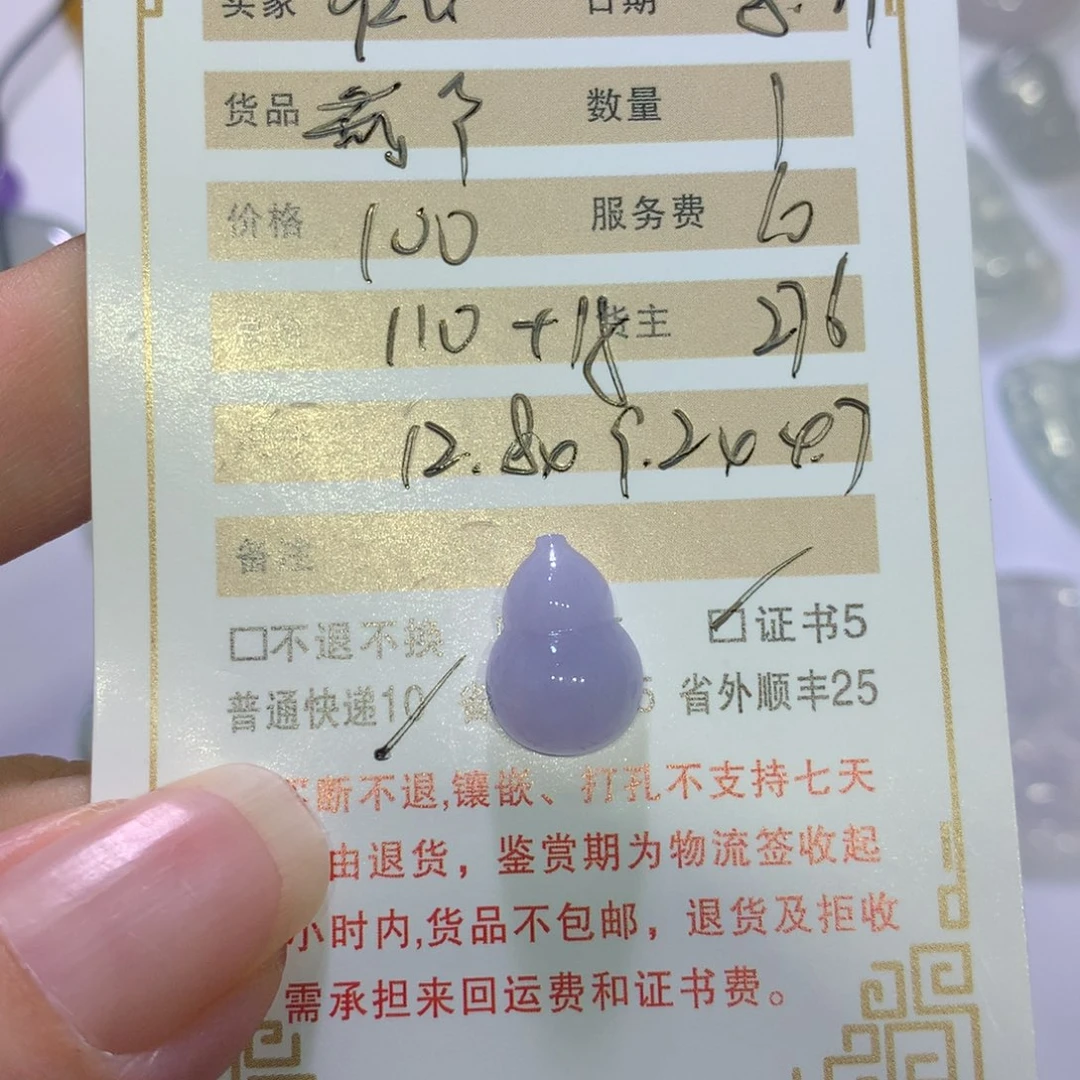 买家 日期
货品 数量 1
价格 100 服务费 10
110 + 18 货主 276
12.8x 9.2x 4.7
备注
□不退不换 ☑证书5
普通快递10 省 5 省外顺丰25
断不退,镶嵌、打孔不支持七天
由退货，鉴赏期为物流签收起
小时内,货品不包邮，退货及拒收
需承担来回运费和证书费。